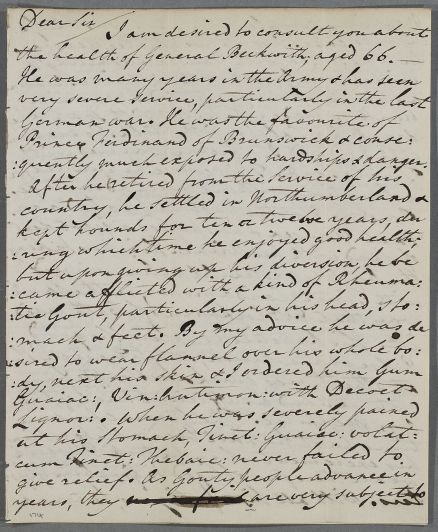 Dear Sir
I am desired to consult you about
the health of General Beckwith, aged 66.—
He was many years in the Army & has seen
very severe service, particularly in the last
German war. He was the favourite of
Prince Ferdinand of Brunswick & conse:
:quently much exposed to hardships & danger.
After he retired from the Service of his
country, he settled in Northumberland &
kept hounds for ten or twelve years, du
ring which time he enjoyed good health;
but upon giving up his diversion, he be
:came afflicted with a kind of Rheuma:
:tic Gout, particularly in his head, sto:
:mach & feet. By my advice he was de
:sired to wear flannel over his whole bo:
:dy, next his skin & I ordered him Gum
Guaiac:, Vin: Antimon: with Decoct:
Lignor:. When he was severely pained
at his stomach, Tinct: Guaiac: volat:
cum Tinct: Thebaic: never failed to
give relief. As Gouty people advance in
years, they are very subject to